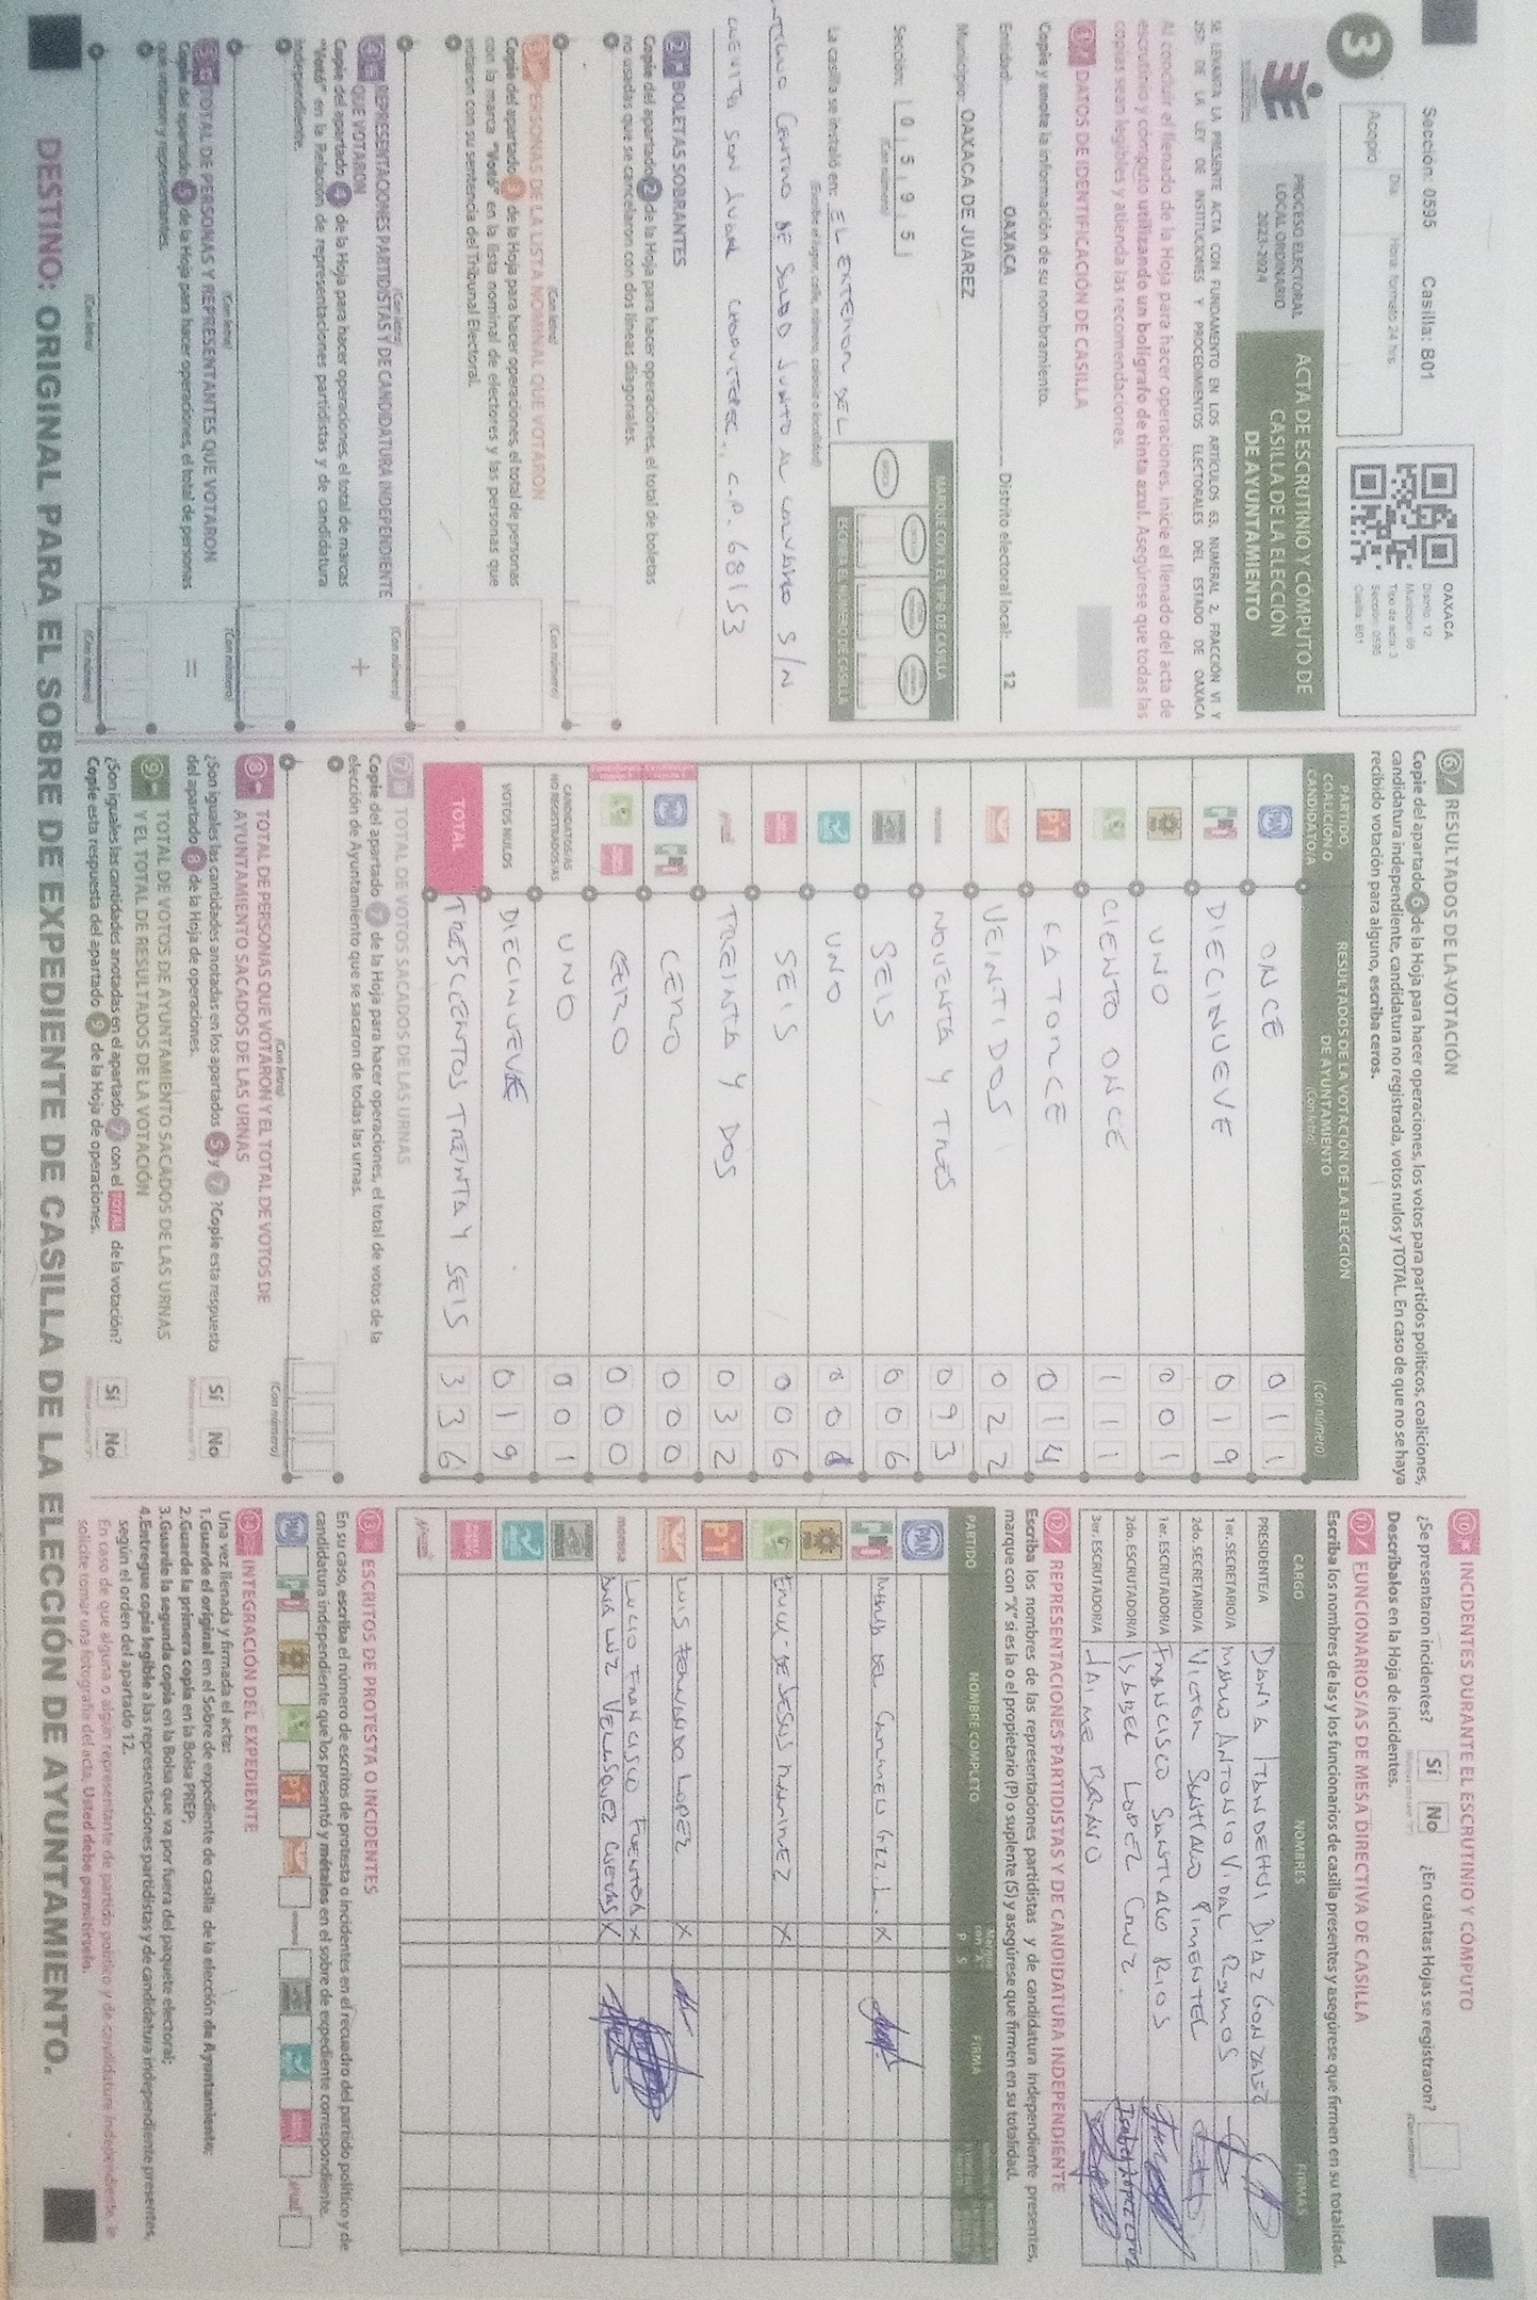 3
Sección: 0595 Casilla: B01
Día Hora: formato 24 hrs.
Acopio
OAXACA
Distrito: 12
Tipo de acta: 3
Sección: 0595
Casilla: B01
PROCESO ELECTORAL
LOCAL ORDINARIO
2023-2024
ACTA DE ESCRUTINIO Y CÓMPUTO DE
CASILLA DE LA ELECCIÓN
DE AYUNTAMIENTO
SE LEVANTA LA PRESENTE ACTA CON FUNDAMENTO EN LOS ARTÍCULOS 63, NUMERAL 2, FRACCIÓN VI Y
257; DE LA LEY DE INSTITUCIONES Y PROCEDIMIENTOS ELECTORALES DEL ESTADO DE OAXACA
Al concluir el llenado de la Hoja para hacer operaciones, inicie el llenado del acta de
escrutinio y cómputo utilizando un bolígrafo de tinta azul. Asegúrese que todas las
copias sean legibles y atienda las recomendaciones.
1 DATOS DE IDENTIFICACIÓN DE CASILLA
Copie y anote la información de su nombramiento.
Entidad: OAXACA Distrito electoral local: 12
Municipio: OAXACA DE JUAREZ
Sección: 0 5 9 5
(Con número)
MARQUE CON X EL TIPO DE CASILLA
ESCRIBA EL NÚMERO DE CASILLA
La casilla se instaló en: EL EXTERIOR DEL
(Escriba el lugar, calle, número, colonia o localidad)
CENTRO DE SALUD JUNTO AL CALVARIO S/N
SAN JUAN CHAPULTEPEC, C.P. 68153
2 BOLETAS SOBRANTES
Copie del apartado 2 de la Hoja para hacer operaciones, el total de boletas
no usadas que se cancelaron con dos líneas diagonales.
(Con letra) (Con número)
3 PERSONAS DE LA LISTA NOMINAL QUE VOTARON
Copie del apartado 3 de la Hoja para hacer operaciones, el total de personas
con la marca "Votó" en la lista nominal de electores y las personas que
votaron con su sentencia del Tribunal Electoral.
(Con letra) (Con número)
4 REPRESENTACIONES PARTIDISTAS Y DE CANDIDATURA INDEPENDIENTE
QUE VOTARON
Copie del apartado 4 de la Hoja para hacer operaciones, el total de marcas
"Votó" en la Relación de representaciones partidistas y de candidatura
independiente.
+
(Con letra) (Con número)
5 TOTAL DE PERSONAS Y REPRESENTANTES QUE VOTARON
Copie del apartado 5 de la Hoja para hacer operaciones, el total de personas
que votaron y representantes.
=
(Con letra) (Con número)
6 RESULTADOS DE LA VOTACIÓN
Copie del apartado 6 de la Hoja para hacer operaciones, los votos para partidos políticos, coaliciones,
candidatura independiente, candidatura no registrada, votos nulos y TOTAL. En caso de que no se haya
recibido votación para alguno, escriba ceros.
PARTIDO, COALICIÓN O CANDIDATO/A
RESULTADOS DE LA VOTACIÓN DE LA ELECCIÓN
DE AYUNTAMIENTO
(Con letra) (Con número)
PAN ONCE 0 1 1
PRI DIECINUEVE 0 1 9
UNO 0 0 1
CIENTO ONCE 1 1 1
PT CATORCE 0 1 4
VEINTIDOS 0 2 2
morena NOVENTA Y TRES 0 9 3
SEIS 0 0 6
UNO 0 0 1
SEIS 0 0 6
TREINTA Y DOS 0 3 2
PAN PRI CERO 0 0 0
CERO 0 0 0
CANDIDATOS/AS
NO REGISTRADOS/AS UNO 0 0 1
VOTOS NULOS DIECINUEVE 0 1 9
TOTAL TRESCIENTOS TREINTA Y SEIS 3 3 6
7 TOTAL DE VOTOS SACADOS DE LAS URNAS
Copie del apartado 7 de la Hoja para hacer operaciones, el total de votos de la
elección de Ayuntamiento que se sacaron de todas las urnas.
(Con letra) (Con número)
8 TOTAL DE PERSONAS QUE VOTARON Y EL TOTAL DE VOTOS DE
AYUNTAMIENTO SACADOS DE LAS URNAS
¿Son iguales las cantidades anotadas en los apartados 5 y 7 ?Copie esta respuesta
del apartado 8 de la Hoja de operaciones.
Sí No
9 TOTAL DE VOTOS DE AYUNTAMIENTO SACADOS DE LAS URNAS
Y EL TOTAL DE RESULTADOS DE LA VOTACIÓN
¿Son iguales las cantidades anotadas en el apartado 7 con el TOTAL de la votación?
Copie esta respuesta del apartado 9 de la Hoja de operaciones.
Sí No
10 INCIDENTES DURANTE EL ESCRUTINIO Y CÓMPUTO
¿Se presentaron incidentes? Sí No ¿En cuántas Hojas se registraron?
(Con número)
Descríbalos en la Hoja de incidentes.
11 FUNCIONARIOS/AS DE MESA DIRECTIVA DE CASILLA
Escriba los nombres de las y los funcionarios de casilla presentes y asegúrese que firmen en su totalidad.
CARGO NOMBRES FIRMAS
PRESIDENTE/A DANIA ITANDEHUI DIAZ GONZALEZ
1er. SECRETARIO/A MARIO ANTONIO VIDAL RAMOS
2do. SECRETARIO/A VICTOR SANTIAGO PIMENTEL
1er. ESCRUTADOR/A FRANCISCO SANTIAGO RIOS
2do. ESCRUTADOR/A ISABEL LOPEZ CRUZ.
3er. ESCRUTADOR/A JAIME BRAVO
12 REPRESENTACIONES PARTIDISTAS Y DE CANDIDATURA INDEPENDIENTE
Escriba los nombres de las representaciones partidistas y de candidatura independiente presentes,
marque con "X" si es la o el propietario (P) o suplente (S) y asegúrese que firmen en su totalidad.
PARTIDO NOMBRE COMPLETO P S FIRMA
PAN
PRI X
X
PT
LUIS FERNANDO LOPEZ X
morena LUCIO FRANCISCO X
ANA LUZ VELASQUEZ CUEVAS X
13 ESCRITOS DE PROTESTA O INCIDENTES
En su caso, escriba el número de escritos de protesta o incidentes en el recuadro del partido político y de
candidatura independiente que los presentó y métalos en el sobre de expediente correspondiente.
14 INTEGRACIÓN DEL EXPEDIENTE
Una vez llenada y firmada el acta:
1.Guarde el original en el Sobre de expediente de casilla de la elección de Ayuntamiento;
2.Guarde la primera copia en la Bolsa PREP;
3.Guarde la segunda copia en la Bolsa que va por fuera del paquete electoral;
4.Entregue copia legible a las representaciones partidistas y de candidatura independiente presentes,
según el orden del apartado 12.
En caso de que alguna o algún representante de partido político y de candidatura independiente, le
solicite tomar una fotografía del acta, Usted debe permitírselo.
DESTINO: ORIGINAL PARA EL SOBRE DE EXPEDIENTE DE CASILLA DE LA ELECCIÓN DE AYUNTAMIENTO.